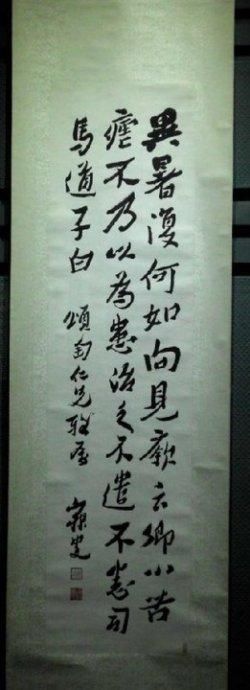 異暑復何如向見顏云卿小苦
瘧不乃以為患治之不遣不悉司
馬道子白
頌陶仁兄雅屬